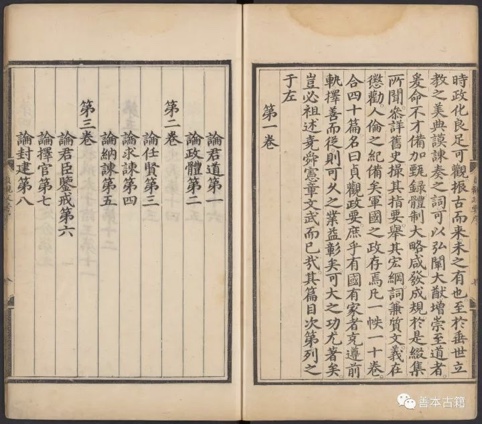 時政化良足可觀振古而來未之有也至於垂世立
教之美典謨諫奏之詞可以弘闡大猷增崇至道者
爰命不才備加甄錄體制大略咸發成規於是綴集
所聞叅詳舊史撮其指要舉其宏綱詞兼質文義在
懲勸人倫之紀備矣軍國之政存焉凡一帙一十卷
合四十篇名曰貞觀政要庶乎有國有家者克遵前
軌擇善而從則可久之業益彰矣可大之功尤著矣
豈必祖述堯舜憲章文武而已哉其篇目次第列之
于左
第一卷
論君道第一
論政體第二
第二卷
論任賢第三
論求諫第四
論納諫第五
第三卷
論君臣鑒戒第六
論擇官第七
論封建第八
善本古籍